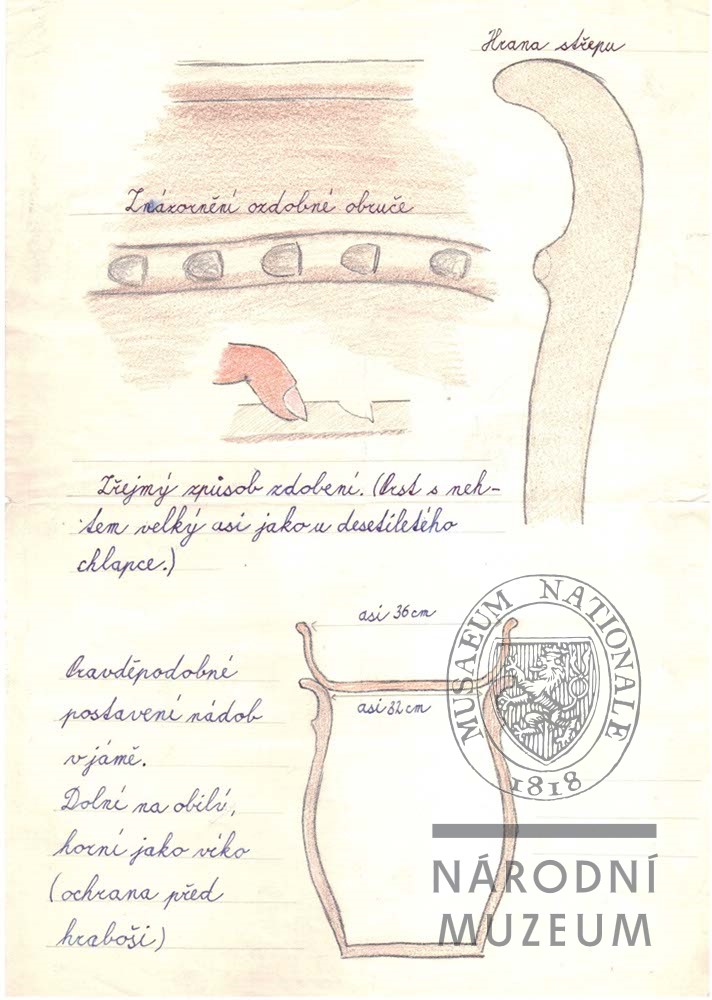 Hrana střepu
Znázornění ozdobné obruče
Zřejmý způsob zdobení. (Prst s neh-
tem velký asi jako u desetiletého
chlapce.)
asi 36 cm
asi 32 cm
Pravděpodobné
postavení nádob
v jámě.
Dolní na obilí,
horní jako víko
(ochrana před
hraboši)
MUSAEUM NATIONALE
1818
NÁRODNÍ
MUZEUM